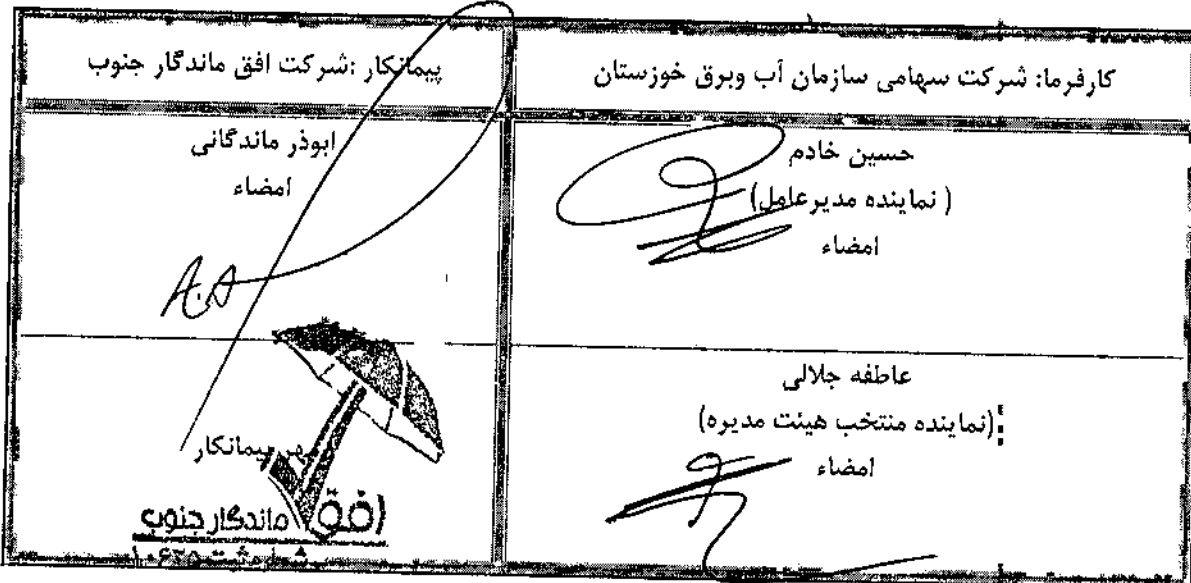 کارفرما: شرکت سهامی سازمان آب وبرق خوزستان
پیمانکار :شرکت افق ماندگار جنوب
حسین خادم
( نماینده مدیرعامل)
امضاء
ابوذر ماندگانی
امضاء
A.A
عاطفه جلالی
(نماینده منتخب هیئت مدیره)
امضاء
مهر پیمانکار
افق ماندگار جنوب